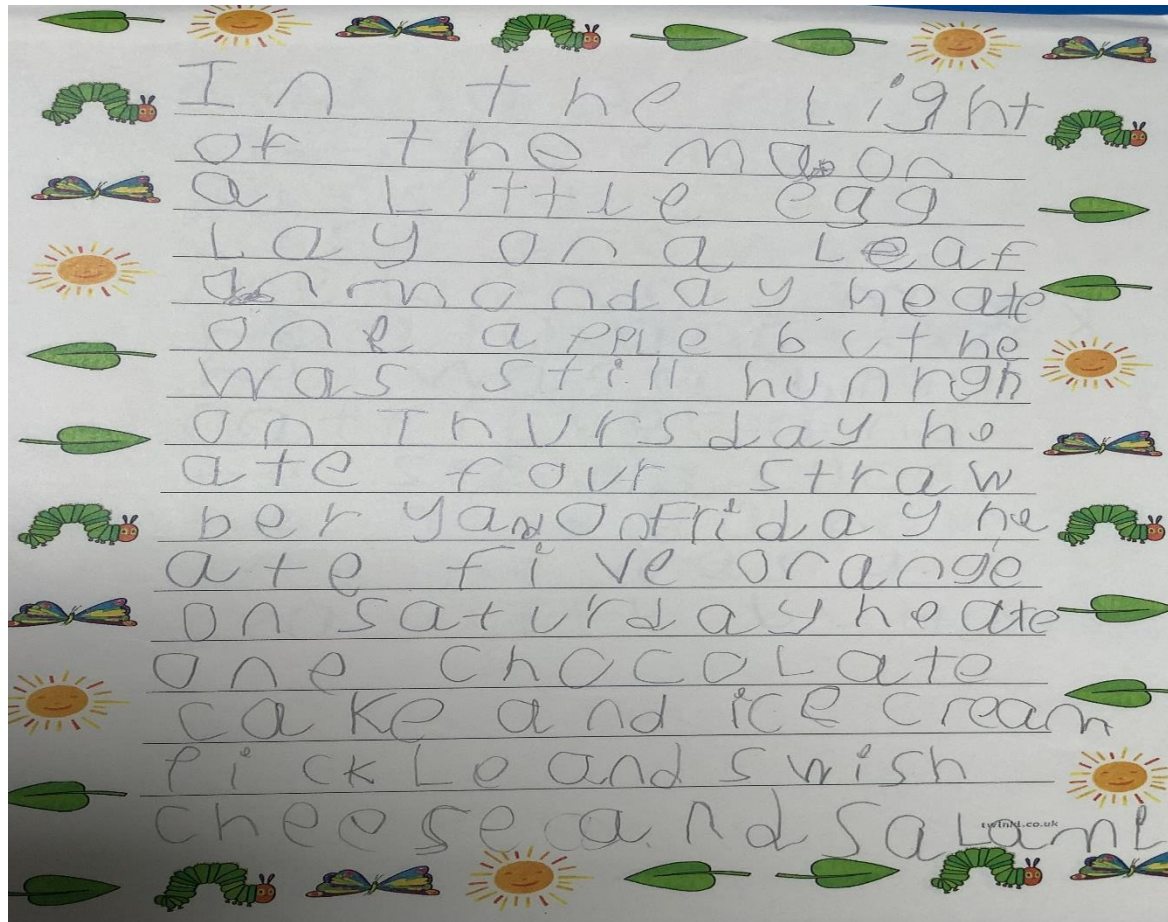 In the Light
of the moon
a Little egg
Lay on a Leaf
on monday he ate
one apple but he
was still hunrgh
on Thursday he
ate four straw
ber yand on Friday he
ate five orange
on saturday he ate
one chocolate
cake and ice cream
pickLe and swish
cheese and saLami
twinkl.co.uk